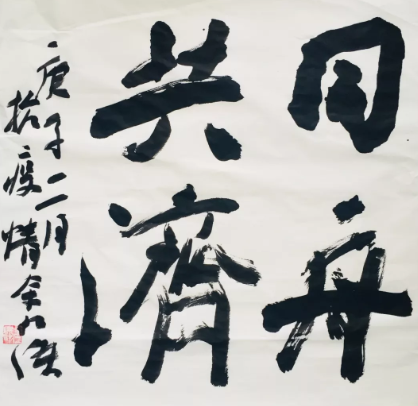 同舟
共濟
庚子二月
抗疫情